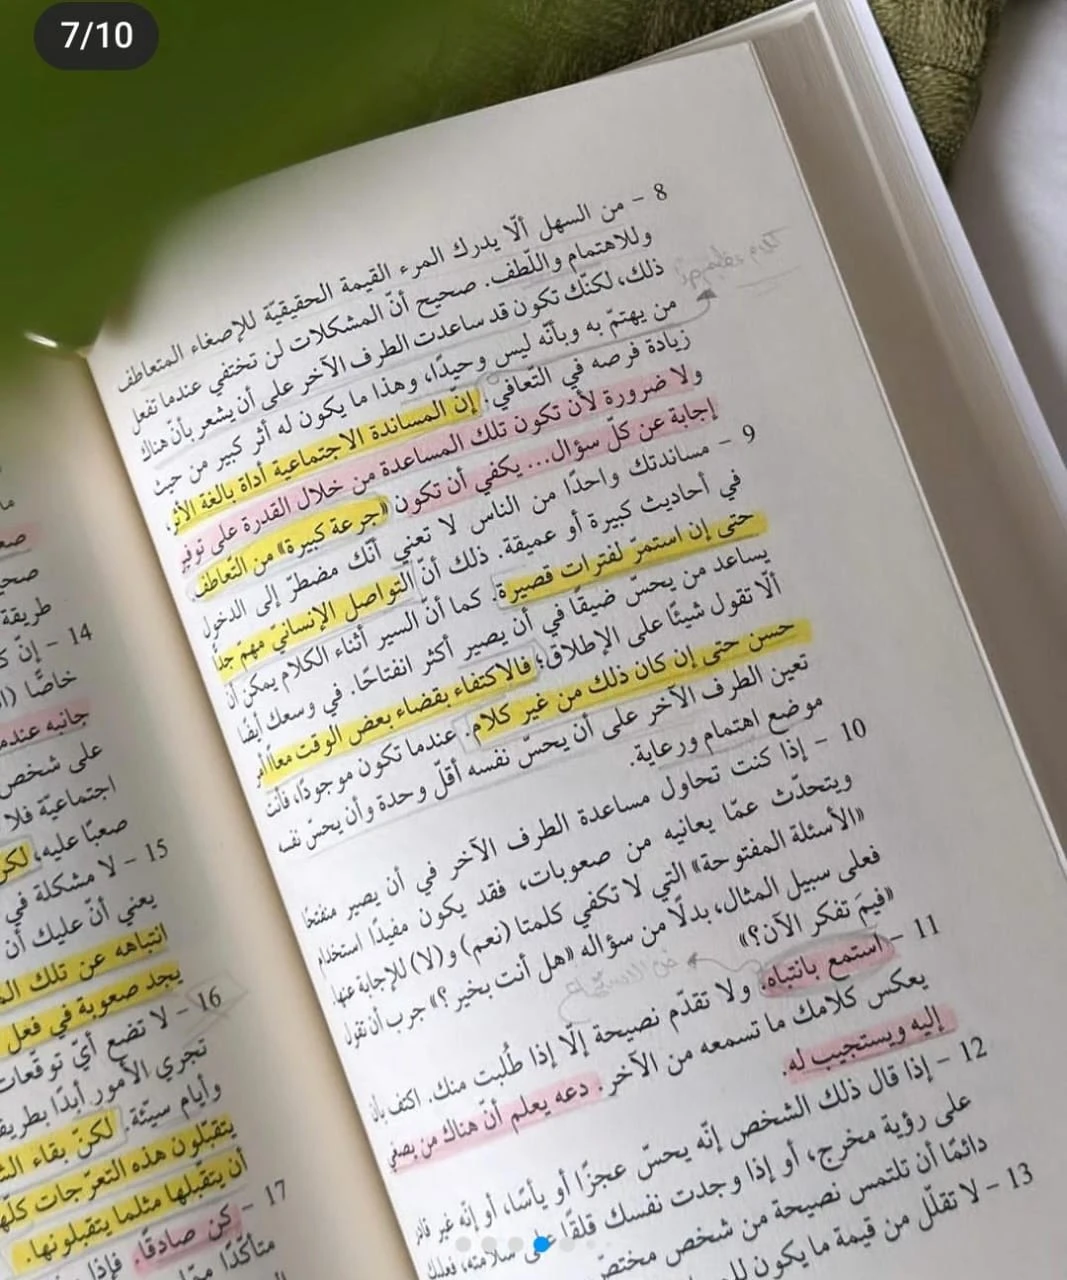 7/10
8 - من السهل ألّا يدرك المرء القيمة الحقيقيّة للإصغاء المتعاطف
وللاهتمام واللّطف. صحيح أنّ المشكلات لن تختفي عندما تفعل
ذلك، لكنّك تكون قد ساعدت الطرف الآخر على أن يشعر بأن هناك
من يهتمّ به وبأنّه ليس وحيدًا، وهذا ما يكون له أثر كبير من حيث
زيادة فرصه في التّعافي. إنّ المساندة الاجتماعية أداة بالغة الأثر،
ولا ضرورة لأن تكون تلك المساعدة من خلال القدرة على توفير
إجابة عن كلّ سؤال... يكفي أن تكون «جرعة كبيرة» من التّعاطف
9 - مساندتك واحدًا من الناس لا تعني أنّك مضطرّ إلى الدخول
في أحاديث كبيرة أو عميقة. ذلك أنّ التواصل الإنسانيّ مهمّ جدًّا
حتى إن استمرّ لفترات قصيرة. كما أنّ السير أثناء الكلام يمكن أن
يساعد من يحسّ ضيقًا في أن يصير أكثر انفتاحًا. في وسعك أيضًا
ألّا تقول شيئًا على الإطلاق؛ فالاكتفاء بقضاء بعض الوقت معًا أمر
حسن حتى إن كان ذلك من غير كلام. عندما تكون موجودًا، فأنت
تعين الطرف الآخر على أن يحسّ نفسه أقلّ وحدة وأن يحسّ نفسه
موضع اهتمام ورعاية.
10 - إذا كنت تحاول مساعدة الطرف الآخر في أن يصير منفتحًا
ويتحدّث عمّا يعانيه من صعوبات، فقد يكون مفيدًا استخدام
«الأسئلة المفتوحة» التي لا تكفي كلمتا (نعم) و(لا) للإجابة عنها.
فعلى سبيل المثال، بدلًا من سؤاله «هل أنت بخير؟» جرب أن تقول
«فيمَ تفكر الآن؟»
11 - استمع بانتباه. ولا تقدّم نصيحة إلّا إذا طُلبت منك. اكتف بأن
يعكس كلامك ما تسمعه من الآخر. دعه يعلم أنّ هناك من يصغي
إليه ويستجيب له.
12 - إذا قال ذلك الشخص إنّه يحسّ عجزًا أو يأسًا، أو إنّه غير قادر
على رؤية مخرج، أو إذا وجدت نفسك قلقًا على سلامته، فعليك
دائمًا أن تلتمس نصيحة من شخص مختصّ.
13 - لا تقلّل من قيمة ما يكون
ما
صحي
طريقة
14 - إنّ
خاصًّا
جانبه عندم
على شخص
اجتماعيّة فلا
صعبًا عليه، لكن
15 - لا مشكلة في
يعني أنّ عليك أن
انتباهه عن تلك
يجد صعوبة في فعل
16 - لا تضع أيّ توقّعات
تجري الأمور أبدًا بطريقة
وأيام سيّئة. لكنّ بقاء
يتقبّلون هذه التعرّجات كلّها
أن يتقبلها مثلما يتقبلونها.
17 - كن صادقًا. فإذا
متأكّدًا